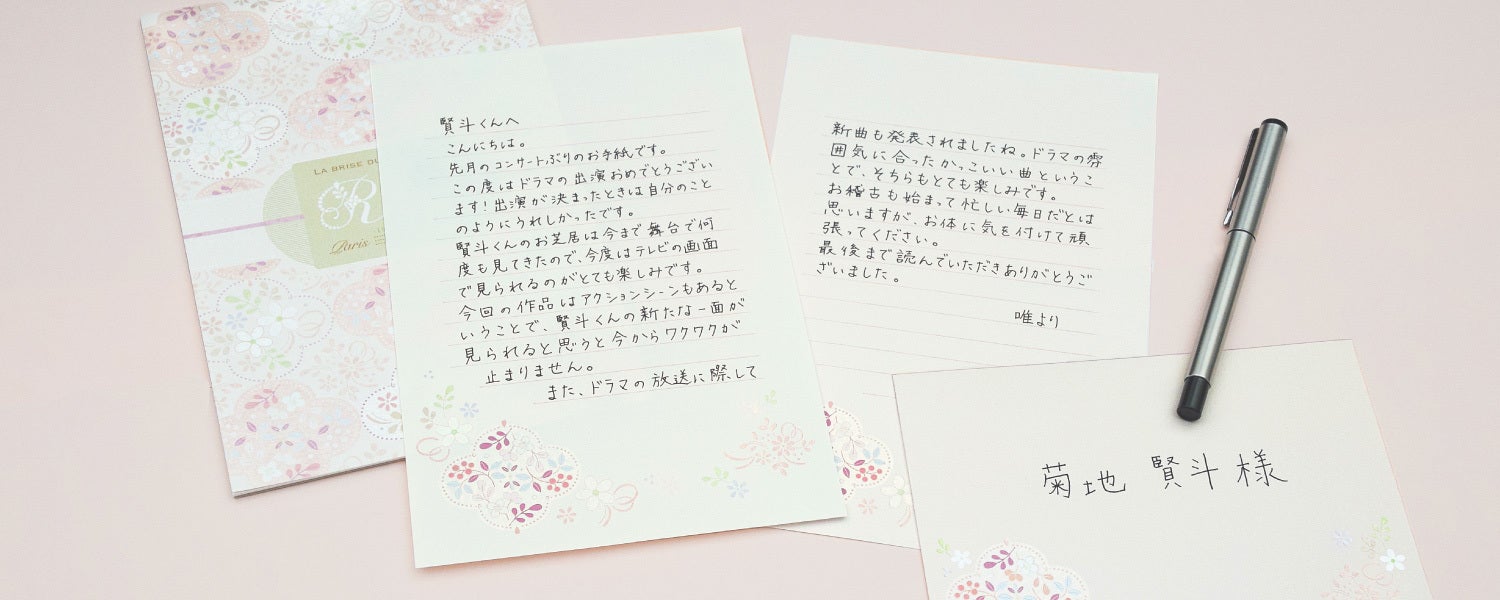 LA BRISE DU
R
Paris
賢斗くんへ
こんにちは。
先月のコンサートぶりのお手紙です。
この度はドラマの出演おめでとうござい
ます!出演が決まったときは自分のこと
のようにうれしかったです。
賢斗くんのお芝居は今まで舞台で何
度も見てきたので、今度はテレビの画面
で見られるのがとても楽しみです。
今回の作品はアクションシーンもあると
いうことで、賢斗くんの新たな一面が
見られると思うと今からワクワクが
止まりません。
また、ドラマの放送に際して
新曲も発表されましたね。ドラマの雰
囲気に合ったかっこいい曲というこ
とで、そちらもとても楽しみです。
お稽古も始まって忙しい毎日だとは
思いますが、お体に気を付けて頑
張ってください。
最後まで読んでいただきありがとうご
ざいました。
唯より
菊地 賢斗様